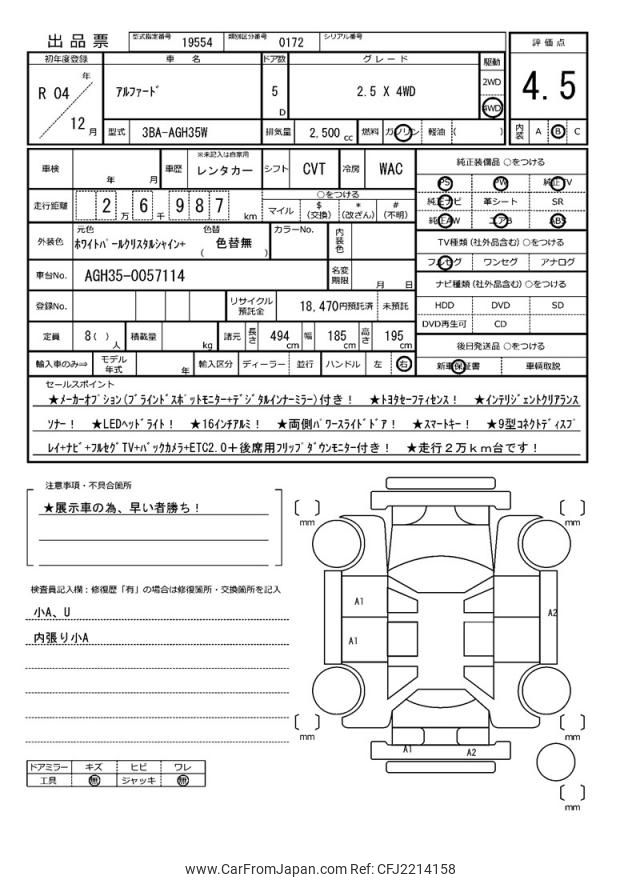 出品票 型式指定番号 19554 類別区分番号 0172 シリアル番号
評価点
4.5
内装 A B C
初年度登録 車名 ドア数 グレード 駆動
R 04 年 12 月
アルファード 5 D 2.5 X 4WD 2WD 4WD
型式 3BA-AGH35W 排気量 2,500 cc 燃料 ガソリン 軽油 ( )
車検 年 月 車歴 ※未記入は自家用 レンタカー シフト CVT 冷房 WAC
走行距離 2 万 6 千 9 8 7 km
○をつける
マイル $ (交換) * (改ざん) # (不明)
外装色 元色 ホワイトパールクリスタルシャイン+ 色替 ( 色替無 ) カラーNo. 内装色
車台No. AGH35-0057114 名変期限 月 日
登録No. リサイクル預託金 18,470円預託済 未預託
定員 8( ) 人 積載量 kg 諸元 長さ 494 cm 幅 185 cm 高さ 195 cm
輸入車のみ⇒ モデル年式 年 輸入区分 ディーラー 並行 ハンドル 左 右
純正装備品 ○をつける
PS PW 純正TV
純正ナビ 革シート SR
純正AW エアB ABS
TV種類 (社外品含む) ○をつける
フルセグ ワンセグ アナログ
ナビ種類 (社外品含む) ○をつける
HDD DVD SD
DVD再生可 CD
後日発送品 ○をつける
新車保証書 車輌取説
セールスポイント
★メーカーオプション(ブラインドスポットモニター+デジタルインナーミラー)付き! ★トヨタセーフティセンス! ★インテリジェントクリアランス
ソナー! ★LEDヘッドライト! ★16インチアルミ! ★両側パワースライドドア! ★スマートキー! ★9型コネクトディスプ
レイ+ナビ+フルセグTV+バックカメラ+ETC2.0+後席用フリップダウンモニター付き! ★走行2万km台です!
注意事項・不具合箇所
★展示車の為、早い者勝ち!
検査員記入欄:修復歴「有」の場合は修復箇所・交換箇所を記入
小A、U
内張り小A
ドアミラー キズ ヒビ ワレ
工具 無 ジャッキ 無
mm
mm
A1
A1
A2
mm
mm
A1
A2
mm
www.CarFromJapan.com Ref: CFJ2214158